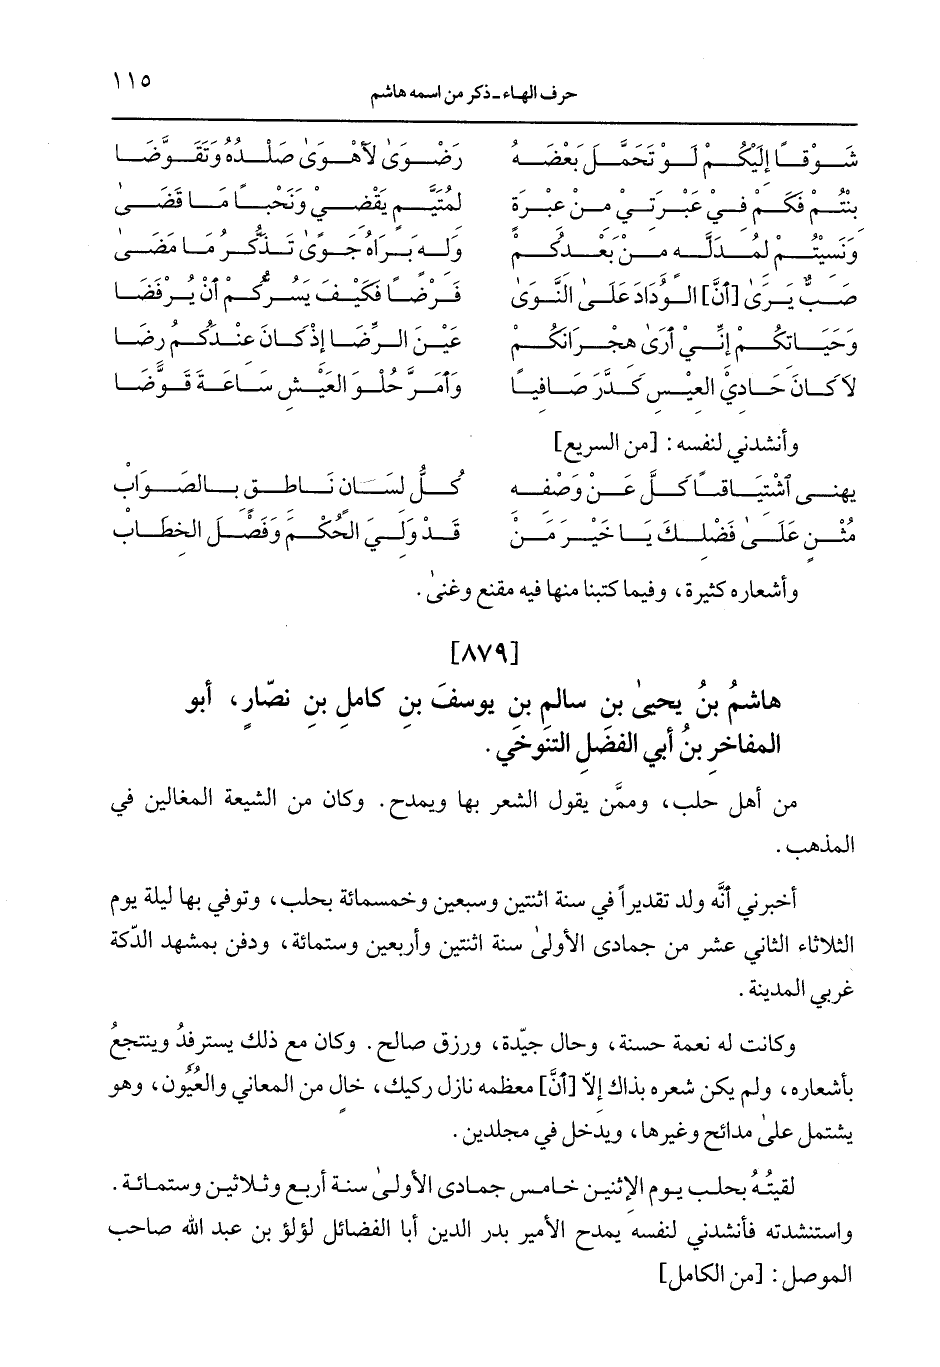 حرف الهاء ـ ذكر من اسمه هاشم
١١٥
شَوْقاً إِلَيْكُمْ لَوْ تَحَمَّلَ بَعْضَهُ رَضْوَىٰ لأَهْوَىٰ صَلْدُهُ وَتَقَوَّضَا
بِنْتُمْ فَكَمْ فِي عَبْرَتِي مِنْ عِبْرَةٍ لِمُتَيَّمٍ يَقْضِي وَنَحْباً مَا قَضَىٰ
وَنَسِيتُمُ لِمُدَلَّهٍ مِنْ بَعْدِكُمْ وَلِهٍ بَرَاهُ جَوًى تَذَكُّرُ مَا مَضَىٰ
صَبٌّ يَرَىٰ [أَنَّ] الوِدَادَ عَلَىٰ النَّوَىٰ فَرْضاً فَكَيْفَ يَسُرُّكُمْ أَنْ يُرْفَضَا
وَحَيَاتِكُمْ إِنِّي أَرَىٰ هِجْرَانَكُمْ عَيْنَ الرِّضَا إِذْ كَانَ عِنْدَكُمُ رِضَا
لاَ كَانَ حَادِيْ العِيْسِ كَدَّرَ صَافِياً وَأَمَرَّ حُلْوَ العَيْشِ سَاعَةَ قَوَّضَا
وأنشدني لنفسه: [من السريع]
يهنى آشْتِيَاقاً كَلَّ عَنْ وَصْفِهِ كُلُّ لِسَانٍ نَاطِقٍ بِالصَّوَابْ
مُثْنٍ عَلَىٰ فَضْلِكَ يَا خَيْرَ مَنْ قَدْ وَلِيَ الحُكْمَ وَفَصْلَ الخِطَابْ
وأشعاره كثيرة، وفيما كتبنا منها فيه مقنع وغنىٰ.
[٨٧٩]
هاشمُ بنُ يحيىٰ بنِ سالمِ بنِ يوسفَ بنِ كاملِ بنِ نصّارٍ، أبو
المفاخرِ بنُ أبي الفضلِ التنوخيِ.
من أهل حلب، وممَّن يقول الشعر بها ويمدح. وكان من الشيعة المغالين في
المذهب.
أخبرني أنَّه ولد تقديراً في سنة اثنتين وسبعين وخمسمائة بحلب، وتوفي بها ليلة يوم
الثلاثاء الثاني عشر من جمادى الأولىٰ سنة اثنتين وأربعين وستمائة، ودفن بمشهد الدّكة
غربي المدينة.
وكانت له نعمة حسنة، وحال جيّدة، ورزق صالح. وكان مع ذلك يسترفدُ وينتجعُ
بأشعاره، ولم يكن شعره بذاك إلاّ [أنَّ] معظمه نازل ركيك، خالٍ من المعاني والعُيُون، وهو
يشتمل علىٰ مدائح وغيرها، ويدخل في مجلدين.
لقيتُهُ بحلب يوم الإثنين خامس جمادى الأولىٰ سنة أربع وثلاثين وستمائة.
واستنشدته فأنشدني لنفسه يمدح الأمير بدر الدين أبا الفضائل لؤلؤ بن عبد الله صاحب
الموصل: [من الكامل]